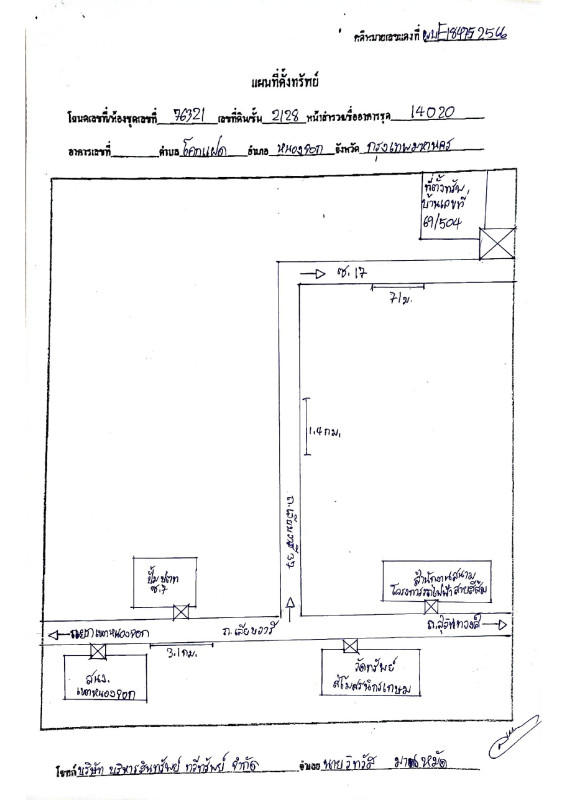 คดีหมายเลขแดงที่ ผบE18475/2566
แผนที่ตั้งทรัพย์
โฉนดเลขที่/ห้องชุดเลขที่ 76321 เลขที่ดิน/ชั้น 2128 หน้าสำรวจ/ชื่ออาคารชุด 14020
อาคารเลขที่ ตำบล โคกแฝด อำเภอ หนองจอก จังหวัด กรุงเทพมหานคร
ที่ตั้งทรัพย์
บ้านเลขที่
69/504
ซ.17
71ม.
1.4 กม.
ถ.เลียบวารี 39
ปั๊ม ปตท
ซ.7
สำนักงานสนาม
โครงการรถไฟฟ้าสายสีส้ม
เขตหนองจอก
ถ.เลียบวารี
ถ.สุวินทวงศ์
3.1 กม.
สนง.
เขตหนองจอก
วัดทรัพย์
สโมสรนิกรเกษม
โจทก์ บริษัท บริหารสินทรัพย์ ทวีทรัพย์ จำกัด จำเลย นายวิทวัส